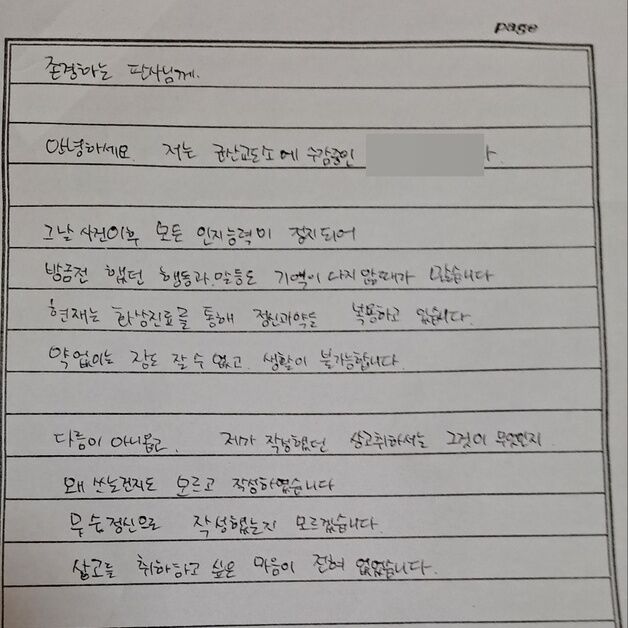 page
존경하는 판사님께.
안녕하세요. 저는 군산교도소에 수감중인
그날 사건이후 모든 인지능력이 정지되어
방금전 했던 행동과 말등도 기억이 나지 않을때가 많습니다
현재는 화상진료를 통해 정신과약을 복용하고 있습니다.
약 없이는 잠도 잘 수 없고. 생활이 불가능합니다.
다름이 아니옵고. 제가 작성했던 상고취하서는 그것이 무엇인지
왜 쓰는건지도 모르고 작성하였습니다
무슨정신으로 작성했는지 모르겠습니다.
상고를 취하하고 싶은 마음이 전혀 없었습니다.